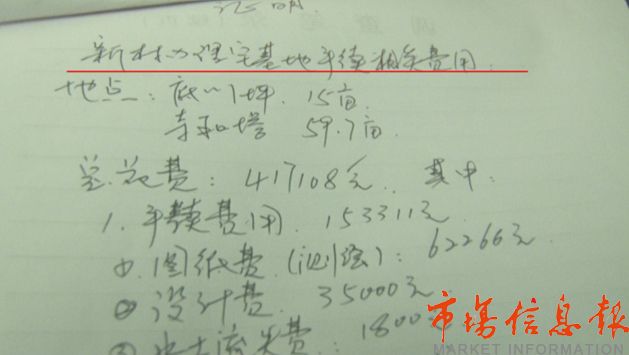 说明
新村办理宅基地手续相关费用
地点：底 坪. 15亩.
寺和塔 59.7亩
总花费：417108元. 其中：
1. 手续费用. 153311元
① 图纸费 (测绘)：62266元
② 设计费 35000元
③ 水土流失费：1800
市场信息報
MARKET INFORMATION